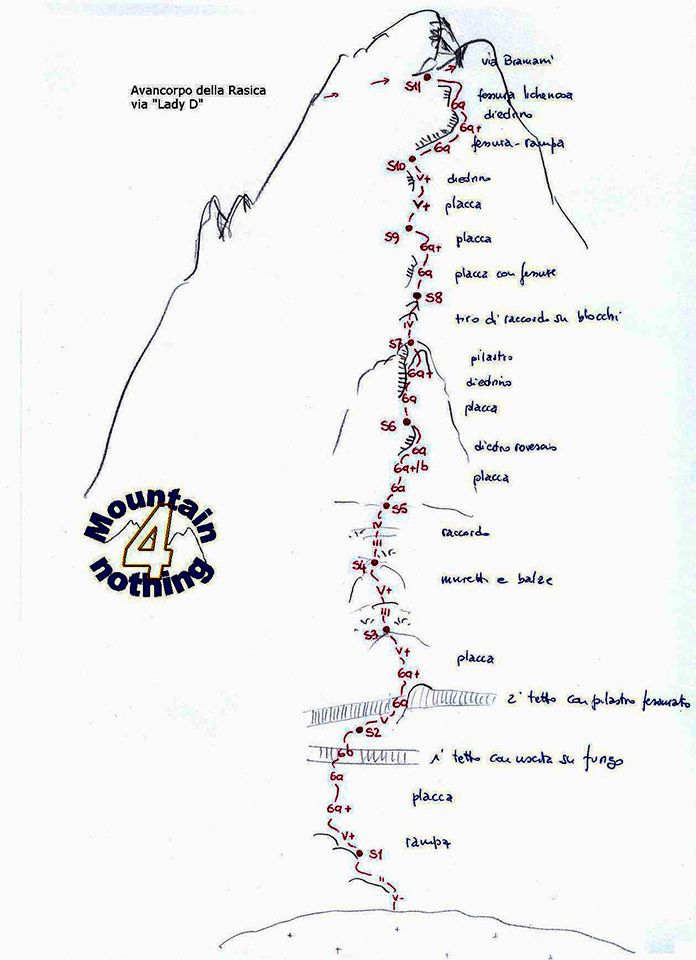 via Bramani
S11
Avancorpo della Rasica
via "Lady D"
fessura lichenosa
6a
diedrino
6a+
6a
fessura-rampa
S10
V+
diedrino
V+
placca
S9
6a+
placca
6a
placca con fessure
S8
IV
tiro di raccordo su blocchi
S7
pilastro
6a+
diedrino
6a
placca
S6
6a
diedro rovescio
6a+/b
placca
6a
S5
Mountain
4
nothing
IV
raccordo
III
S4
V+
muretti e balze
III
S3
V+
placca
6a+
6a
2° tetto con pilastro fessurato
V
S2
6b
1° tetto con uscita su fungo
6a
placca
6a+
V+
rampa
S1
II
V-